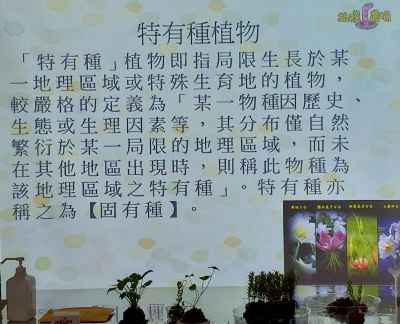 特有種植物
「特有種」植物即指局限生長於某
一地理區域或特殊生育地的植物，
較嚴格的定義為「某一物種因歷史、
生態或生理因素等，其分布僅自然
繁衍於某一局限的地理區域，而未
在其他地區出現時，則稱此物種為
該地理區域之特有種」。特有種亦
稱之為【固有種】。